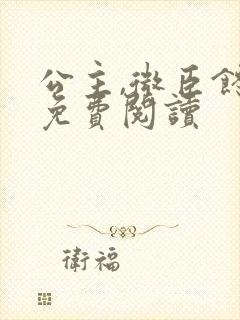 公主,微臣
免費閱讀
衛福